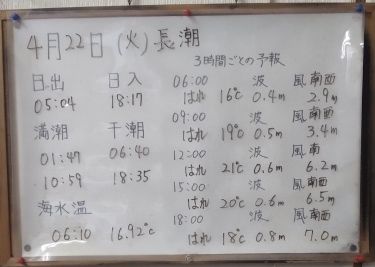 4月22日(火)長潮
3時間ごとの予報
日出 日入
05:04 18:17
満潮 干潮
01:47 06:40
10:59 18:35
海水温
06:10 16.92℃
06:00 波 風南西
はれ 16℃ 0.4m 2.9m
09:00 波 風南西
はれ 19℃ 0.5m 3.4m
12:00 波 風南
はれ 21℃ 0.6m 6.2m
15:00 波 風南西
はれ 20℃ 0.6m 6.5m
18:00 波 風南西
はれ 18℃ 0.8m 7.0m